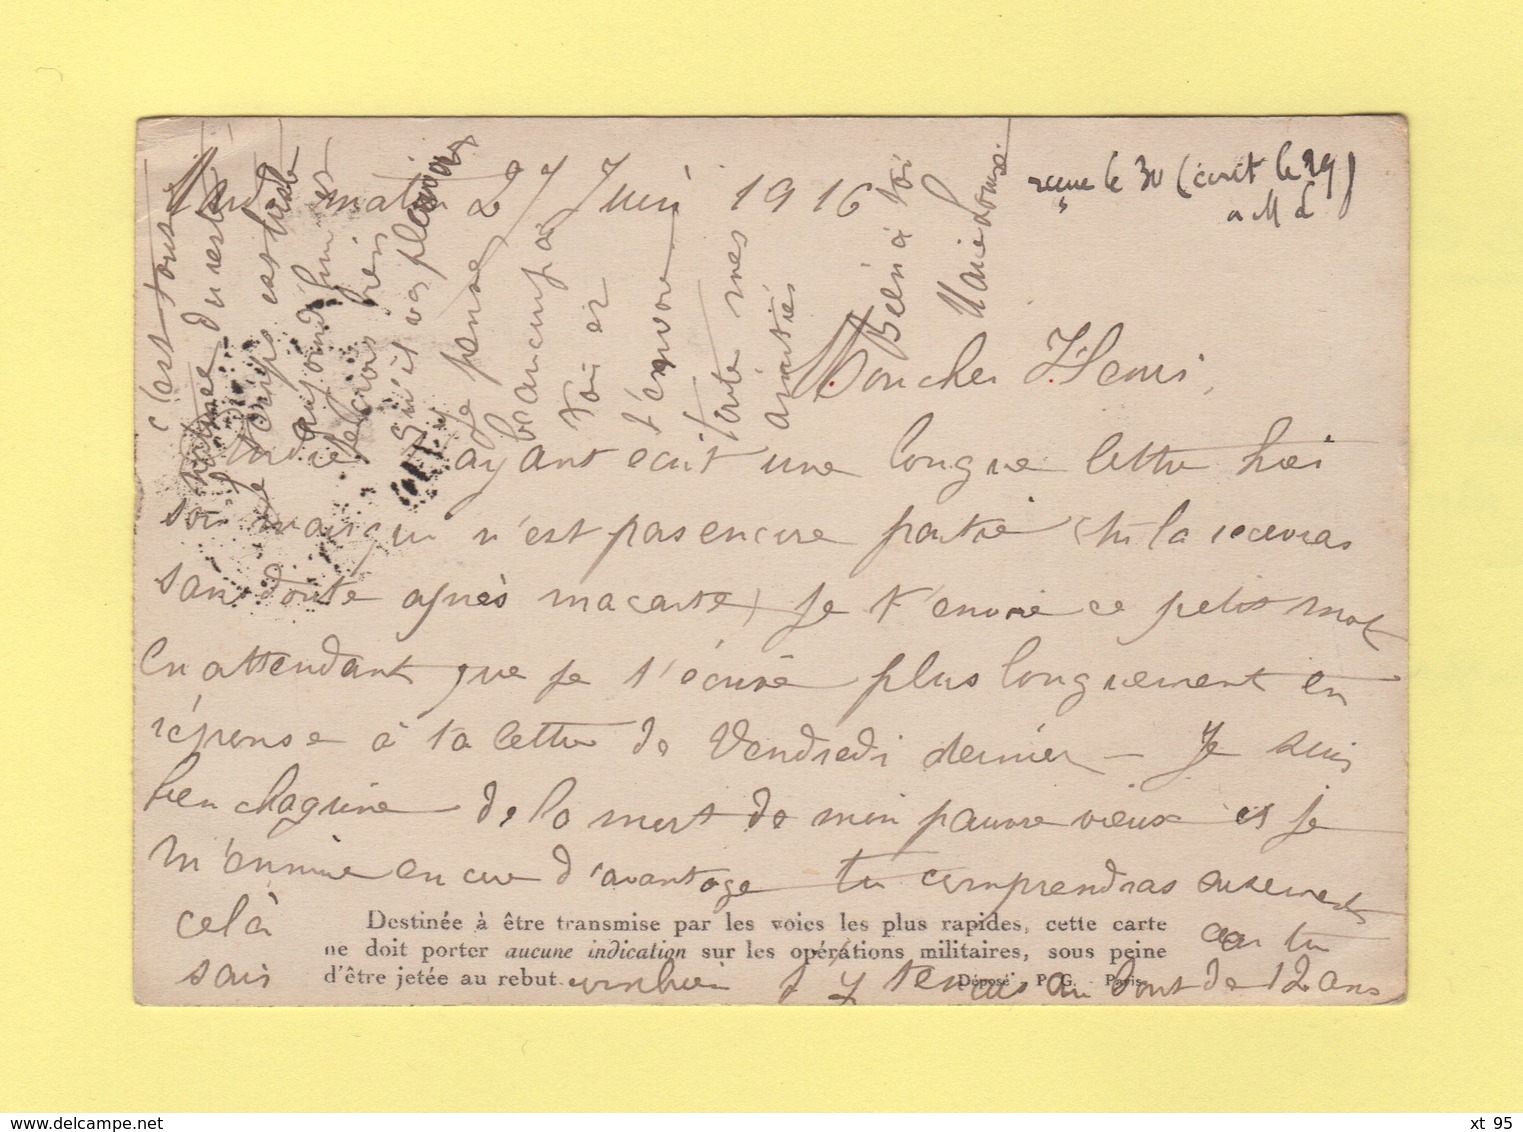 Mardi matin 27 Juin 1916
reçue le 30 (écrit le 29)
a M L
Mon cher Henri,
ayant écrit une longue lettre hier
soir mais qui n'est pas encore partie (tu la recevras
sans doute après ma carte) je t'envoie ce petit mot
en attendant que je t'écrive plus longuement en
réponse à ta lettre de Vendredi dernier — Je suis
bien chagrine de la mort de mon pauvre vieux et je
m'ennuie encore d'avantage tu comprendras aisement
celà car tu
sais combien j'y tenais au bout de 12 ans
Destinée à être transmise par les voies les plus rapides, cette carte
ne doit porter aucune indication sur les opérations militaires, sous peine
d'être jetée au rebut.
Déposé P. G. Paris
c'est tout
du reste
le temps est triste
aujourd'hui et
je crois bien
qu'il va pleuvoir
Je pense
beaucoup à
toi et
t'envoie
toute mes
amitiés
Bien à toi
Marie Louise
xt 95